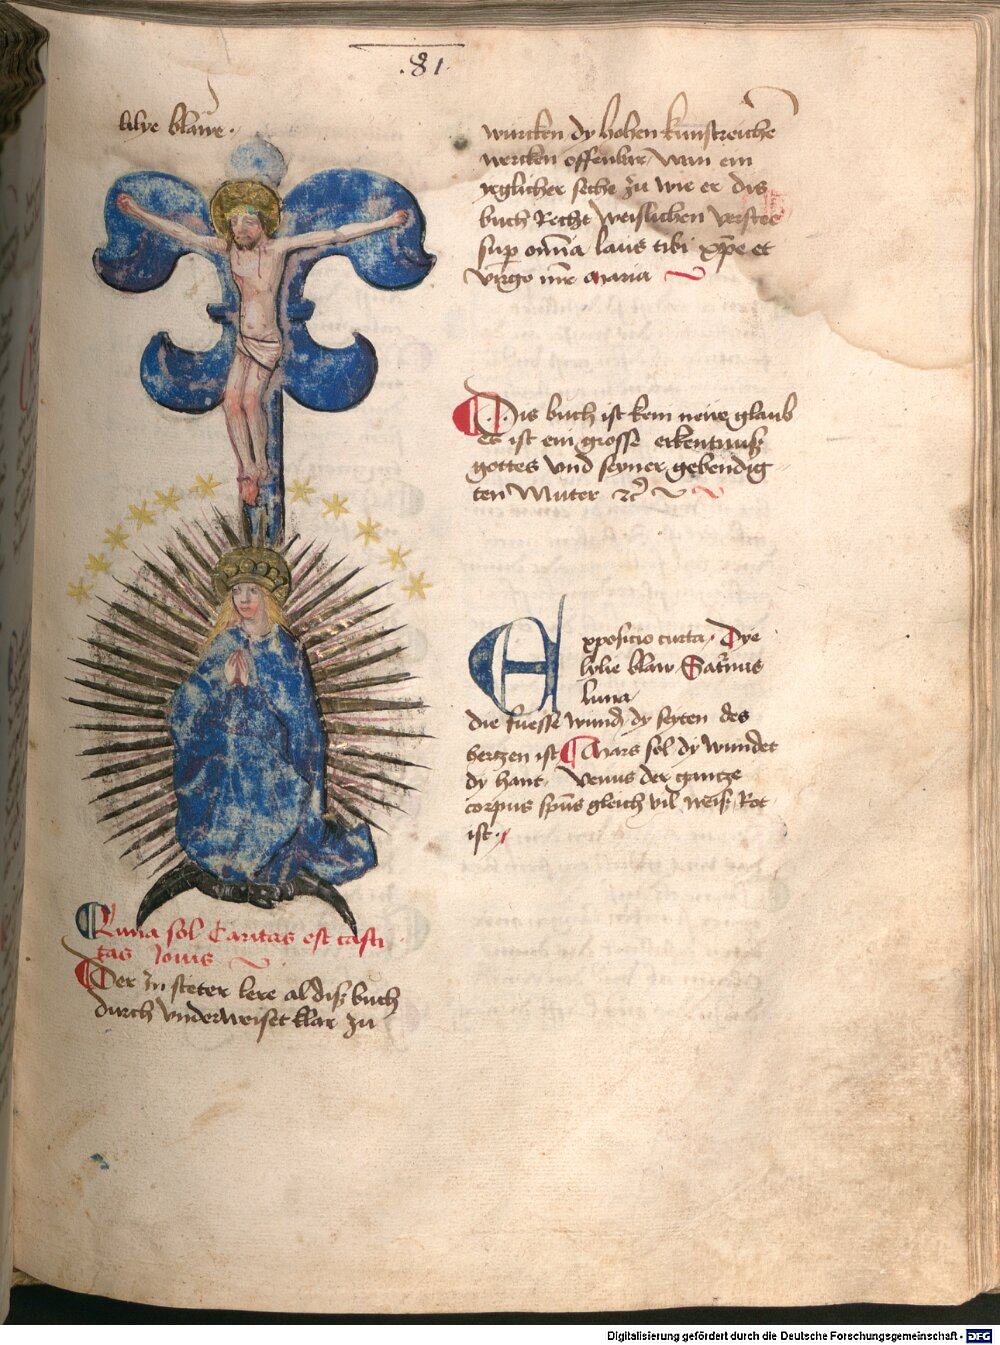 .81.
lilye blawe.
Luna sol Caritas est casti
tas Jovis
Der zu steter lere al dis buch
durch underweiset klar zu
wurcken dy hohen kunstreiche
wercken offenbar wan ein
yglicher seche zu wie er dis
buch Recht weislichen verstee
sup omnia laus tibi xpe et
virgo mre maria
Dis buch ist kein neue glaub
es ist ein grosse erkentnuß
gottes und seyner gebendig
ten Muter
Expositio curta. Dye
lylie blaw Saturnus
luna
die fuesse wund dy seyten des
hertzen ist Mars sol dy wundet
dy hant. Venus der gantze
corpus spus gleich vil weis Rot
ist.
Digitalisierung gefördert durch die Deutsche Forschungsgemeinschaft - DFG